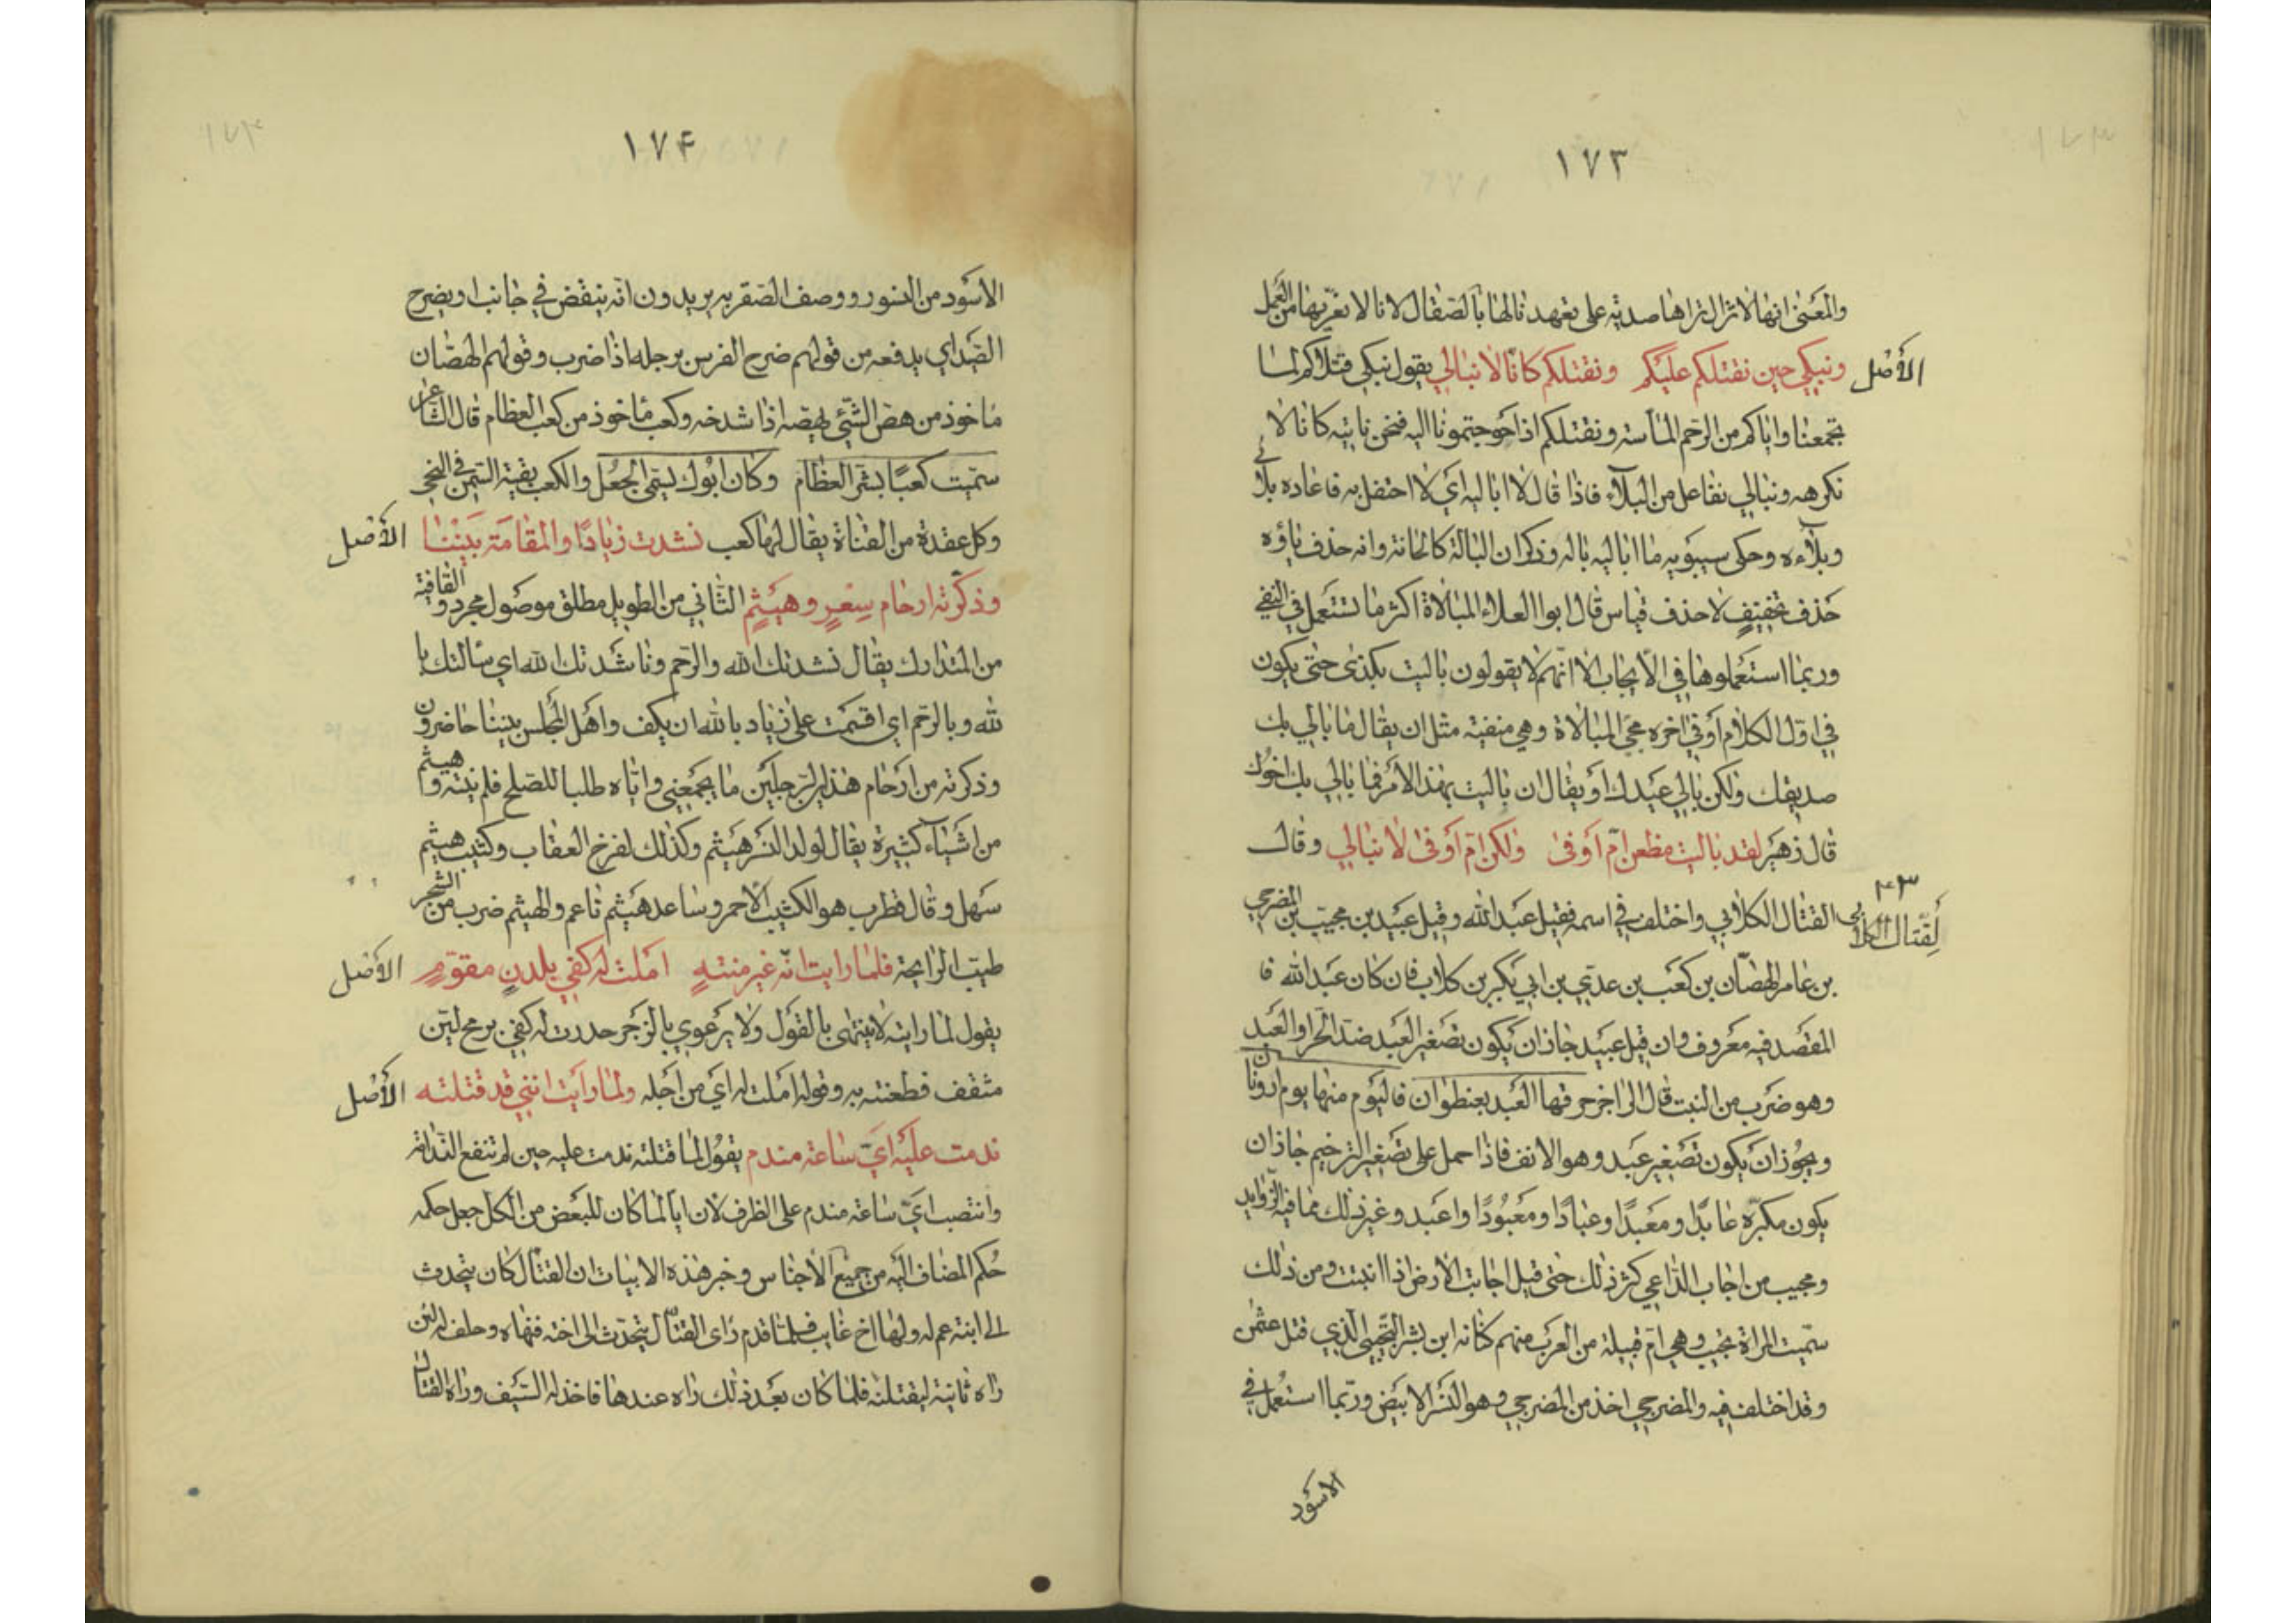 ١٧٣
والمعنى انها لا تزال تراها صدية على تعهد نالها بالصقال لانا لا نعريها من العمل
الأصل ونبكي حين نقتلكم عليكم ونقتلكم كانا لا نبالي يقول نبكي قتلاكم لما
يجمعنا واياكم من الرحم الماسة ونقتلكم اذا احوجتمونا اليه فنحن ناتيه كانا لا
نكرهه ونبالي نفاعل من البلآء فاذا قال لا اباليه اي لا احتفل به فاعاده بلائى
وبلآءه وحكى سيبويه ما اباليه باله وذكر ان البالة كالحانة وانه حذف ياؤه
حذف تخفيف لا حذف قياس قال ابوا العلاء المبالاة اكثر ما تستعمل في النفي
وربما استعملوها في الايجاب الا انهم لا يقولون باليت بكذى حتى يكون
في اول الكلام أو في اخره مجئ المبالاة وهي منفية مثل ان يقال ما بالي بك
صديقك ولكن بالي عبدك أو يقال ان باليت بهذا الأمر فما بالي بك اخوك
قال زهير لقد باليت مظعن ام أوفى ولكن ام أوفى لا نبالي وقال
٤٣
لقتال الكلابي
القتال الكلابي واختلف في اسمه فقيل عبد الله وقيل عبيد بن مجيب بن المضرحي
بن عامر الهصان بن كعب بن عدي بن ابي بكر بن كلاب فان كان عبد الله فا
المقصد فيه معروف وان قيل عبيد جاز ان يكون تصغير العبد ضد الحر او العبد
وهو ضرب من النبت قال الراجز حرقها العبد بعنظوان فاليوم منها يوم ارونان
ويجوز ان يكون تصغير عبد وهو الانف فاذا حمل على تصغير الترخيم جاز ان
يكون مكبره عابدًا ومعبدًا وعبادًا ومعبودًا واعبد وغير ذلك مما فيه الزوايد
ومجيب من اجاب الداعي كثر ذلك حتى قيل اجابت الارض اذا انبتت ومن ذلك
سميت المراة تجيب وهي ام قبيلة من العرب منهم كنانه ابن بشر التجيبي الذي قتل عثمن
وقد اختلف فيه والمضرحي اخذ من المضرحي وهو النسر الابيض وربما استعمل في
الاسود
١٧۴
الاسود من النسور ووصف الصقر به يريدون انه ينقض في جانب او يضرح
الصيد اي يدفعه من قولهم ضرح الفرس برجله اذا ضرب وقولهم الهصان
ماخوذ من هص الشئ يهصه اذا شدخه وكعب ماخوذ من كعب العظام قال الشاعر
سميت كعبًا بشر العظام وكان ابوك يسمى الجعل والكعب بقية السمن في النحي
وكل عقدة من القناة يقال لها كعب نشدت زيادًا والمقامة بيننا الأصل
وذكرته ارحام سعر وهيثم الثاني من الطويل مطلق موصول مجرد والقافية
من المتدارك يقال نشدتك الله والرحم وناشدتك الله اي سالتك با
لله وبالرحم اي اقسمت على زياد بالله ان يكف واهل المجلس بيننا حاضرون
وذكرته من ارحام هذا الرجلين ما يجمعني واياه طلبا للصلح فلم ينته وهيثم
من اشياء كثيرة يقال لولد النسر هيثم وكذلك لفرخ العقاب وكثيب هيثم
سهل وقال قطرب هو الكثيب الاحمر وساعد هيثم ناعم والهيثم ضرب من الشجر
طيب الرايحة فلما رايت انه غير منته املت له كفي بلدن مقوم الأصل
يقول لما رايته لا ينتهي بالقول ولا يرعوي بالزجر حدرت له كفي برمح لين
مثقف فطعنته به وقوله املت له اي من اجله ولما رأيت انني قد قتلته الأصل
ندمت عليه اي ساعة مندم يقول لما قتلته ندمت عليه حين لم تنفع الندامة
وانتصب اي ساعة مندم على الظرف لان ايا لما كان للبعض من الكل جعل حكمه
حكم المضاف اليه من جميع الأجناس وخبر هذه الابيات ان القتال كان يتحدث
الى ابنة عم له ولها اخ غايب فلما قدم راى القتال يتحدث الى اخته فنهاه وحلف له لئن
راه ثانية ليقتلنه فلما كان بعد ذلك راه عندها فاخذ له السيف وراه القتال